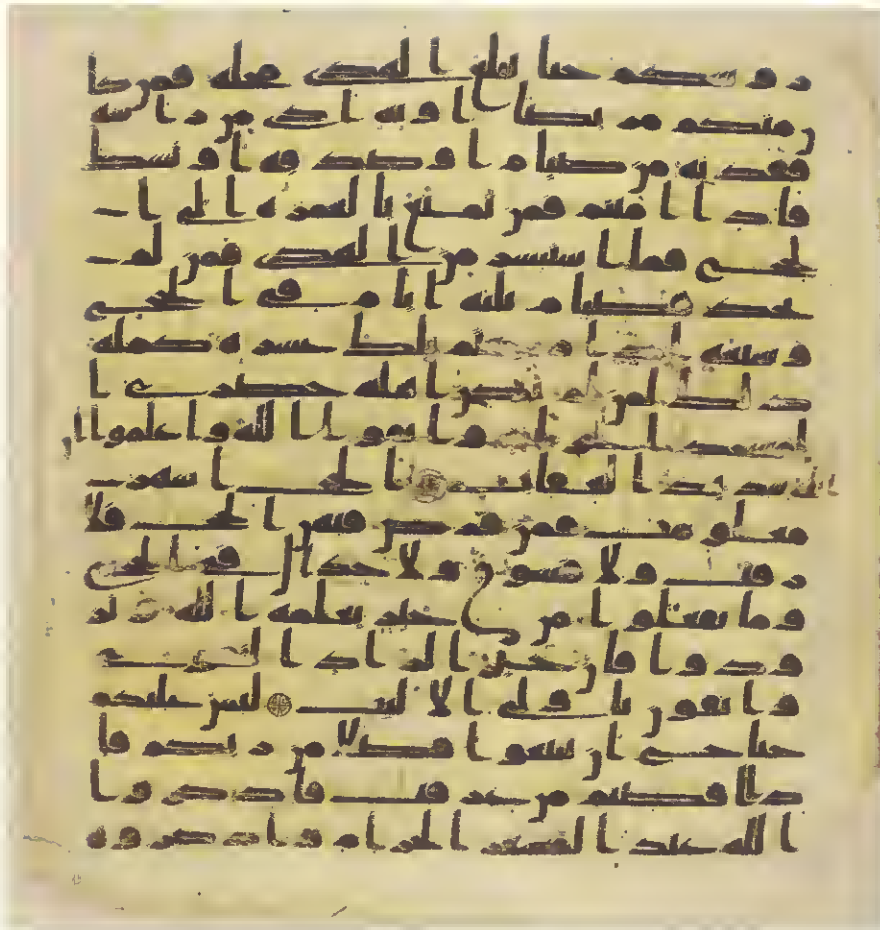 روسكم حتا يبلغ الهدى محله فمن كا
ن منكم مريضا او به اذى من راسه
ففدية من صيام او صدقة او نسك
فاذا امنتم فمن تمتع بالعمرة الى ا
لحج فما استيسر من الهدى فمن لم
يجد فصيام ثلثة ايام فى الحج
وسبعة اذا رجعتم تلك عشرة كملة
ذلك لمن لم يكن اهله حاضرى ا
لمسجد الحرام واتقوا الله واعلموا ان
الله شديد العقاب الحج اشهر
معلومت فمن فرض فيهن الحج فلا
رفث ولا فسوق ولا جدال فى الحج
وما تفعلوا من خير يعلمه الله وتز
ودوا فان خير الزاد التقوى
واتقون ياولى الالبب ليس عليكم
جناح ان تبتغوا فضلا من ربكم فا
ذا افضتم من عرفت فاذكروا
الله عند المشعر الحرام واذكروه